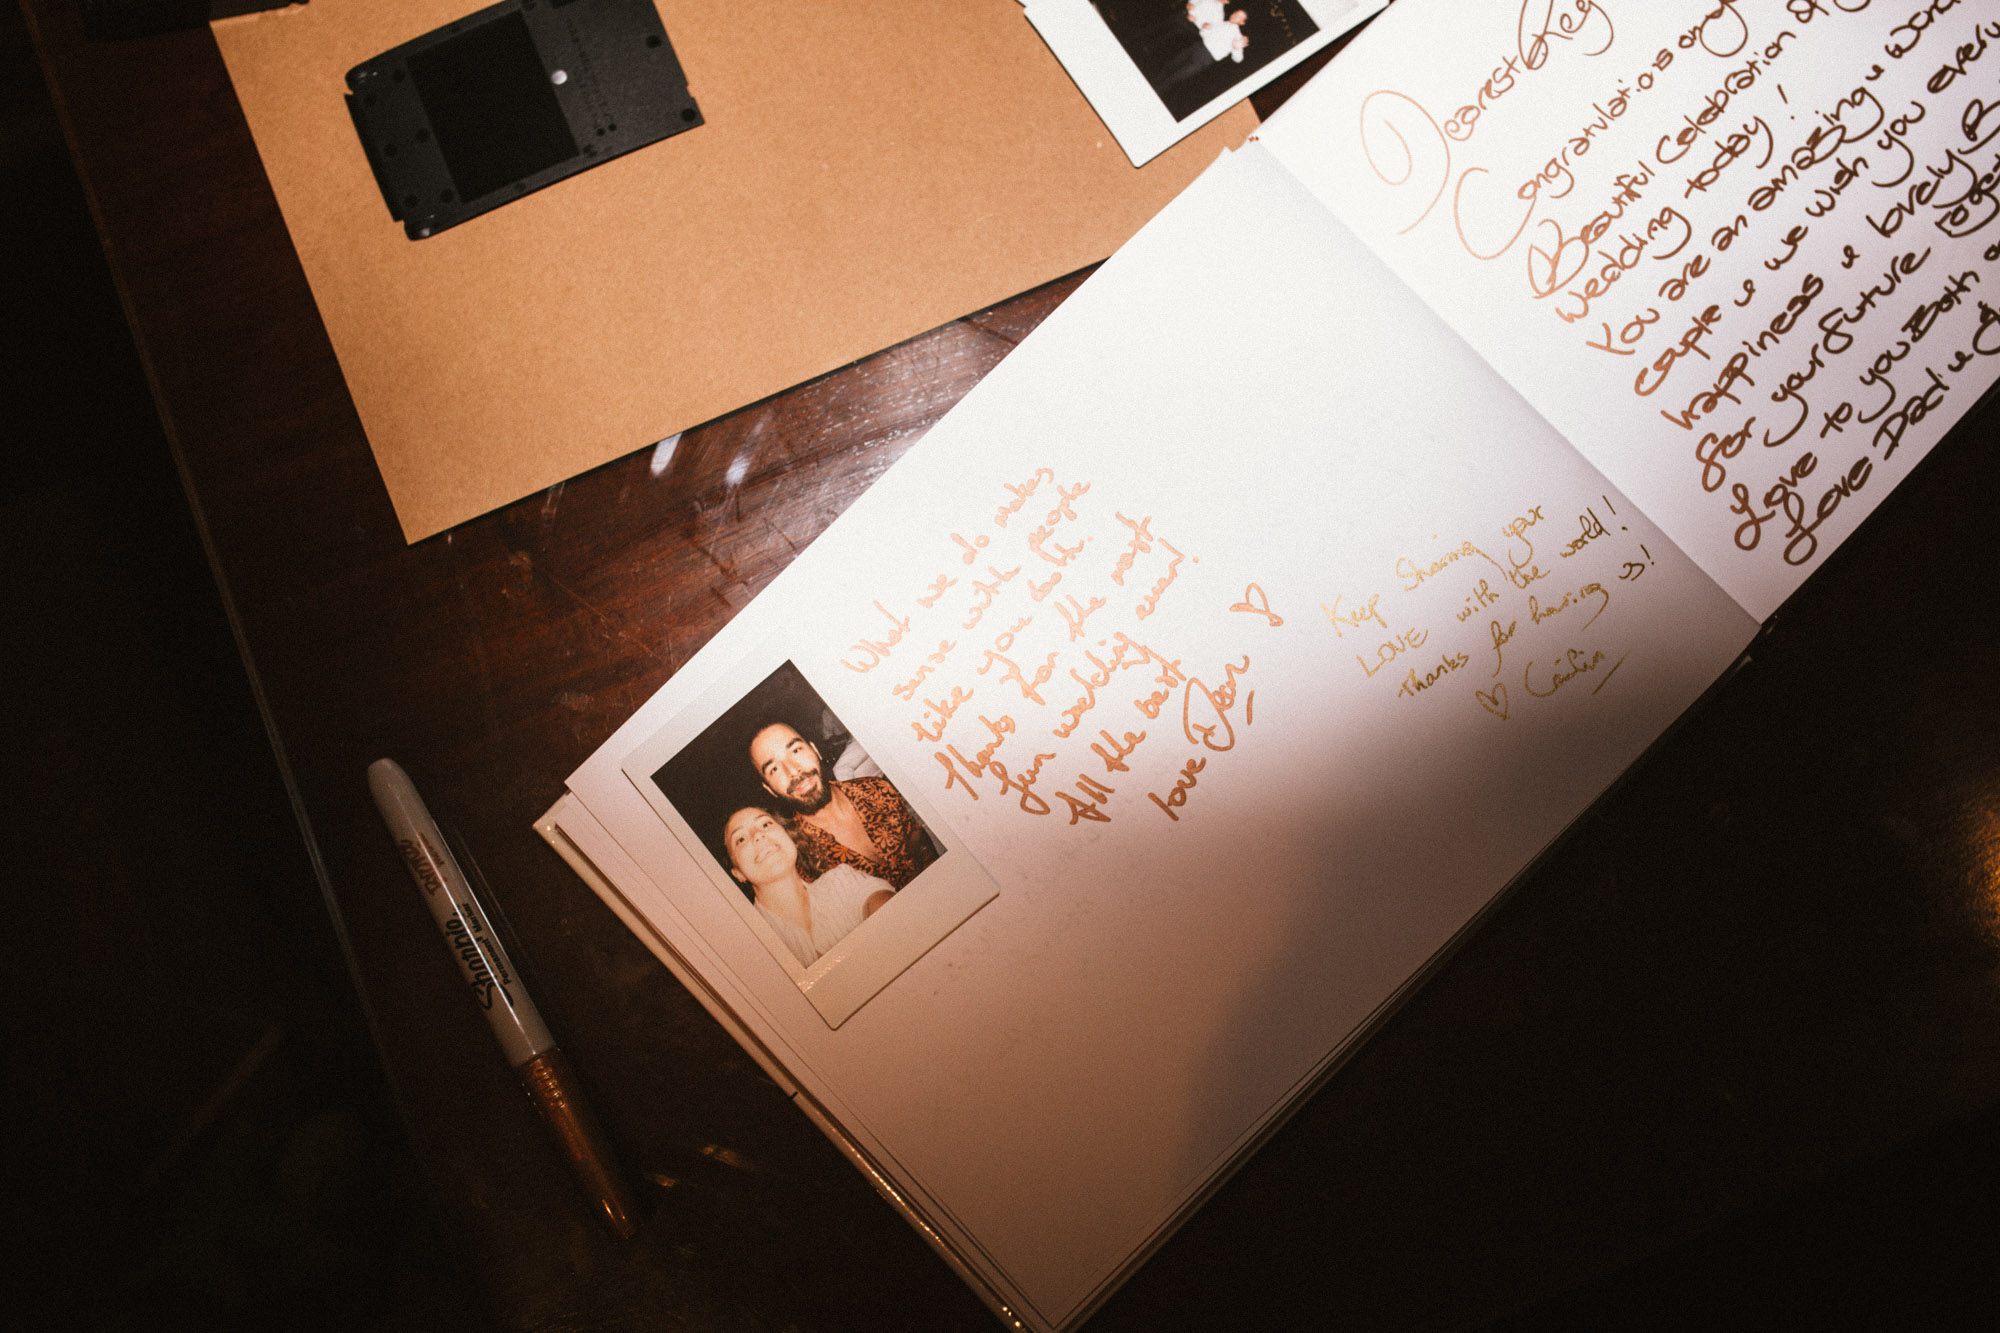 What we do makes
sense with people
like you do it.
Thanks for the most
fun wedding ever!
All the best
love Dear
Keep Sharing your
LOVE with the world!
Thanks for having us!
Caitlin
Dearest
Congratulations on
Beautiful Celebration of
Wedding today!
You are an amazing
couple & we wish you every
happiness & lovely
for your future
Love to you Both
Love Dad &
BRONZE
Sharpie
Permanent Marker